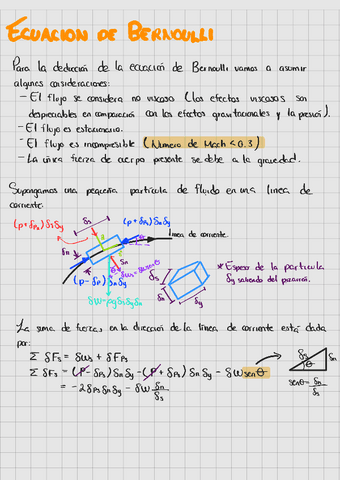 ECUACION DE BERNOULLI
Para la deducción de la ecuación de Bernoulli vamos a asumir
algunas consideraciones:
– El flujo se considera no viscoso (los efectos viscosos son
despreciables en comparación con los efectos gravitacionales y la presión).
– El flujo es estacionario.
– El flujo es incompresible (Número de Mach < 0.3)
– La única fuerza de cuerpo presente se debe a la gravedad.
Supongamos una pequeña partícula de fluido en una línea de
corriente.
δs
(p+δPn) δs δy
(p+δPs) δn δy
línea de corriente.
δn
δn
(p-δPn) δs δy
δW=ρg δs δy δn
δs
δn
δy
* Espesor de la partícula
δy saliendo del pizarrón.
La suma de fuerzas en la dirección de la línea de corriente está dada
por:
Σ δFs = δWs + δFPs
Σ δFs = (P - δPs) δn δy - (P + δPs) δn δy - δW senθ
= -2 δPs δn δy - δW δn/δs
δs
δn
θ
senθ = δn/δs